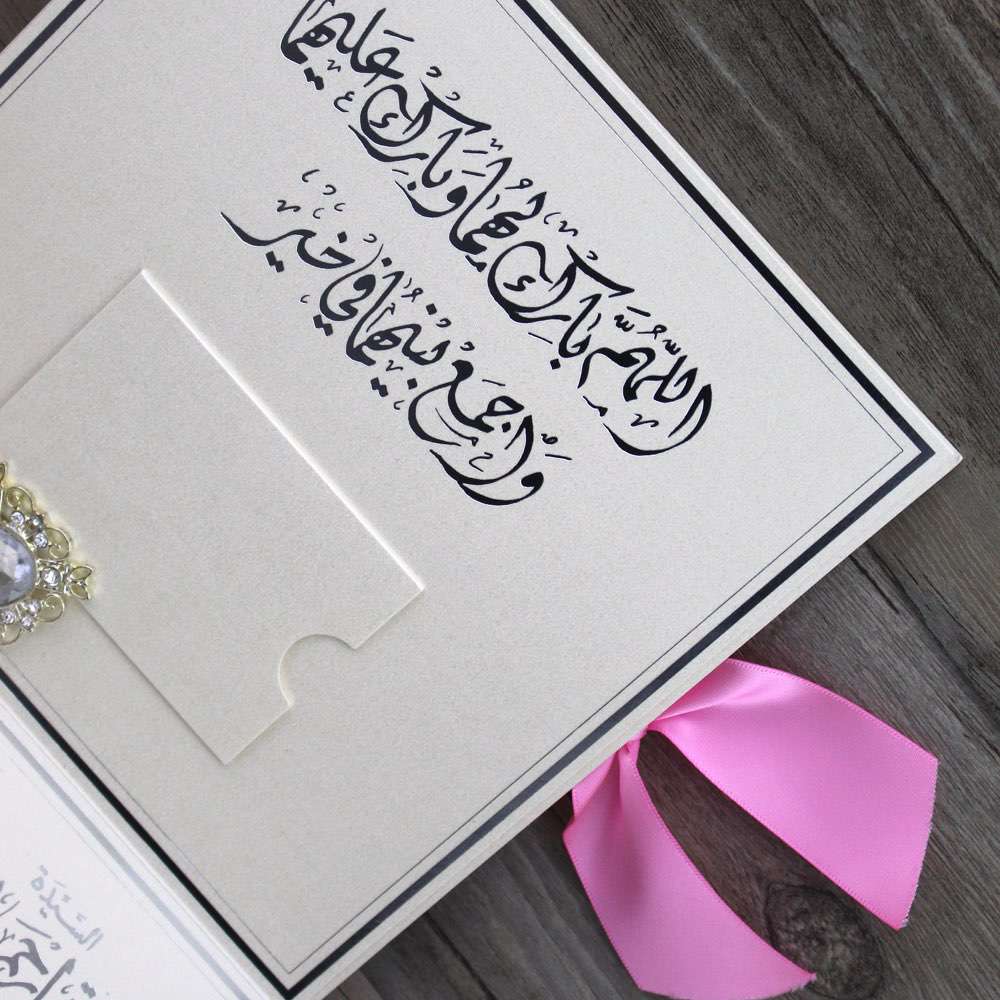 اللَّهُمَّ بَارِكْ لَهُمَا وَبَارِكْ عَلَيْهِمَا
وَاجْمَعْ بَيْنَهُمَا فِي خَيْرٍ
السَّيِّدَة